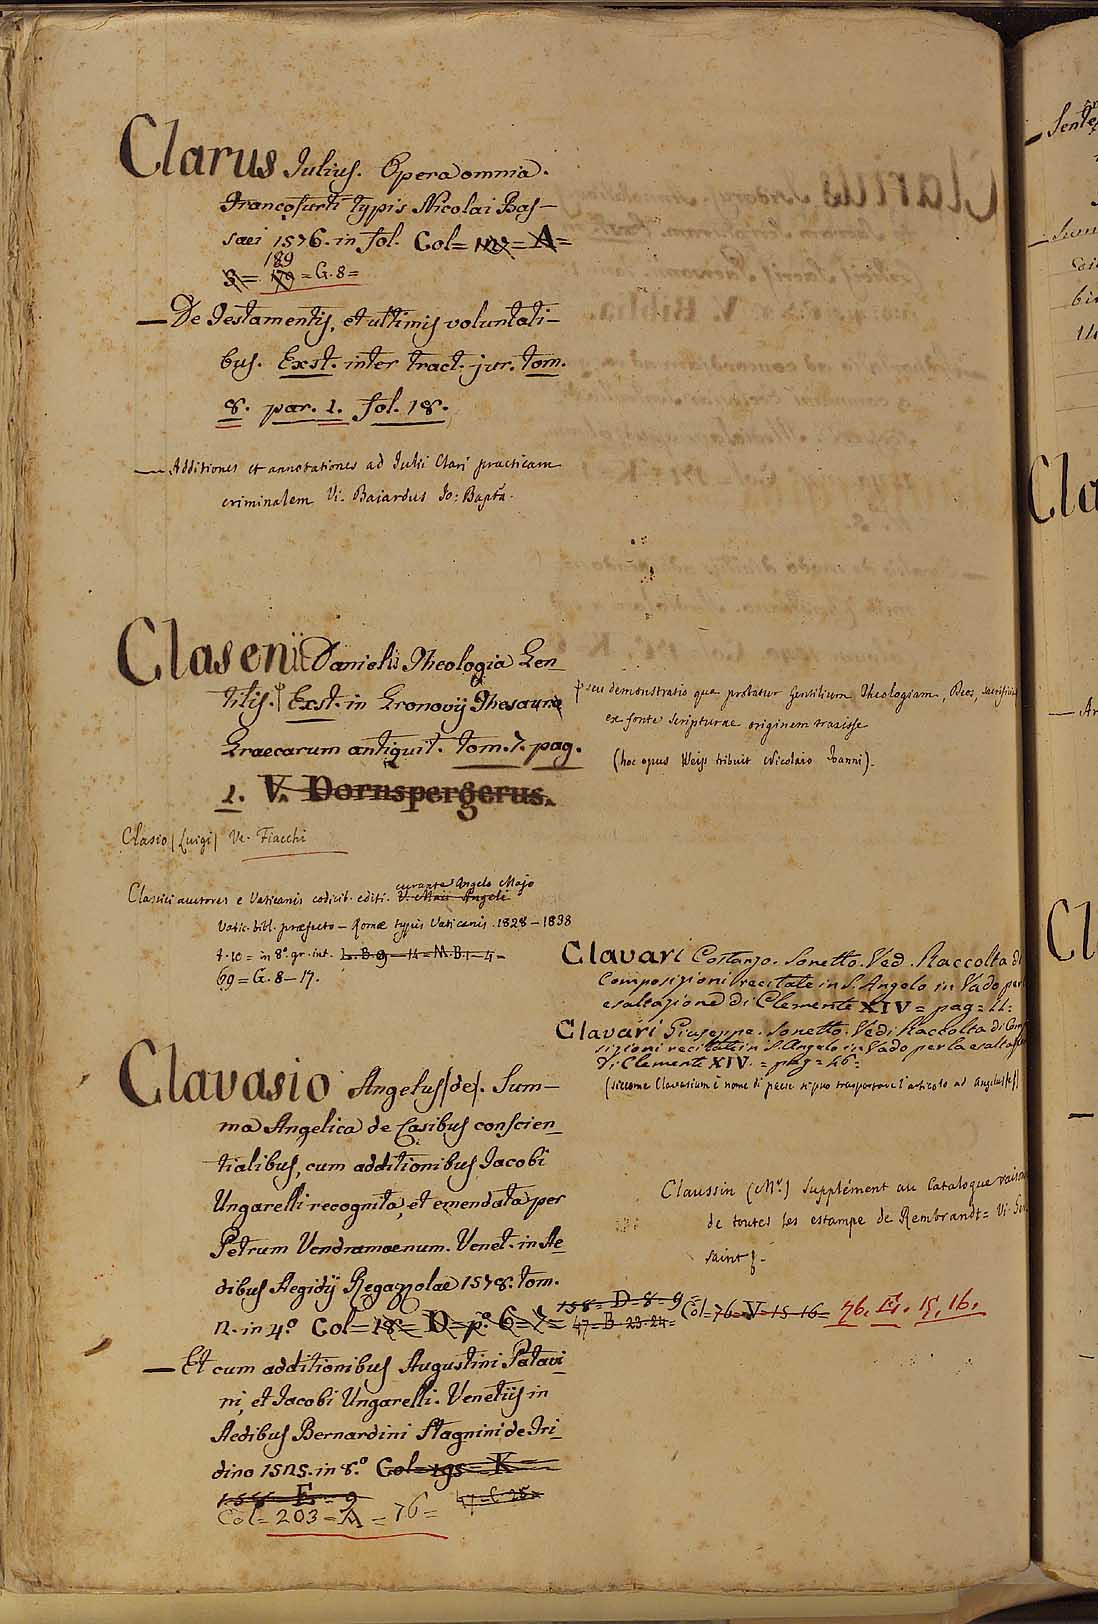 Clarus Julius. Opera omnia.
Francofurti typis Nicolai Bas-
saei 1576. in fol. Col=
189
= G. 8=
— De Testamentis, et ultimis voluntati-
bus. Exst. inter tract. jur. tom.
8. par. 1. fol. 18.
— Additiones et annotationes ad Julii Clari practicam
criminalem Vi. Baiardus Jo: Bapta.
Clasenii Danielis Theologia Gen-
tilis. Exst. in Gronovij Thesauro
Graecarum antiquit. tom. 7. pag.
1. V. Dornspergerus.
seu demonstratio qua probatur Gentilium Theologiam, Deos, sacrificia
ex fonte Scripturae originem traxisse
(hoc opus Weiss tribuit Nicolaio Joanni).
Clasio (Luigi) Ve. Fiacchi
curante Angelo Majo
Classici auctores e Vaticanis codicib. editi. V. Maii Angeli
Vatic. bibl. præfecto — Romæ typis Vaticanis. 1828 — 1838
t. 10 = in 8º gr. int.
69 = G. 8 — 17.
Clavari Costanzo. Sonetto. Ved. Raccolta di
Composizioni recitate in S. Angelo in Vado per
esaltazione di Clemente XIV = pag = 22=
Clavari Giuseppe. Sonetto. Vedi Raccolta di Com
sizioni recitate in S. Angelo in Vado per la esalta
di Clemente XIV. = pag = 26=
(siccome Clavasium è nome di paese si puo trasportare l'articolo ad Angelus)
Clavasio Angelus (de). Sum-
ma Angelica de Casibus conscien-
tialibus, cum additionibus Jacobi
Ungarelli recognita, et emendata per
Petrum Vendramaenum. Venet. in Ae-
dibus Aegidij Regazzolae 1578. tom.
n. in 4º Col= 18= D= pº 6= 7= 158= D=8=9=
47=B 23-24=
Col=76=V=15-16= 76. E. 15, 16.
— Et cum additionibus Augustini Patavi-
ni, et Jacobi Ungarelli. Venetiis in
Aedibus Bernardini Stagnini de Tri-
dino 1525. in 8º Col= 195= K=
Col= 203= A = 76=
Claussin (Mr.) Supplément au Catalogue raison
de toutes les estampe de Rembrandt= Vi. Ger
saint